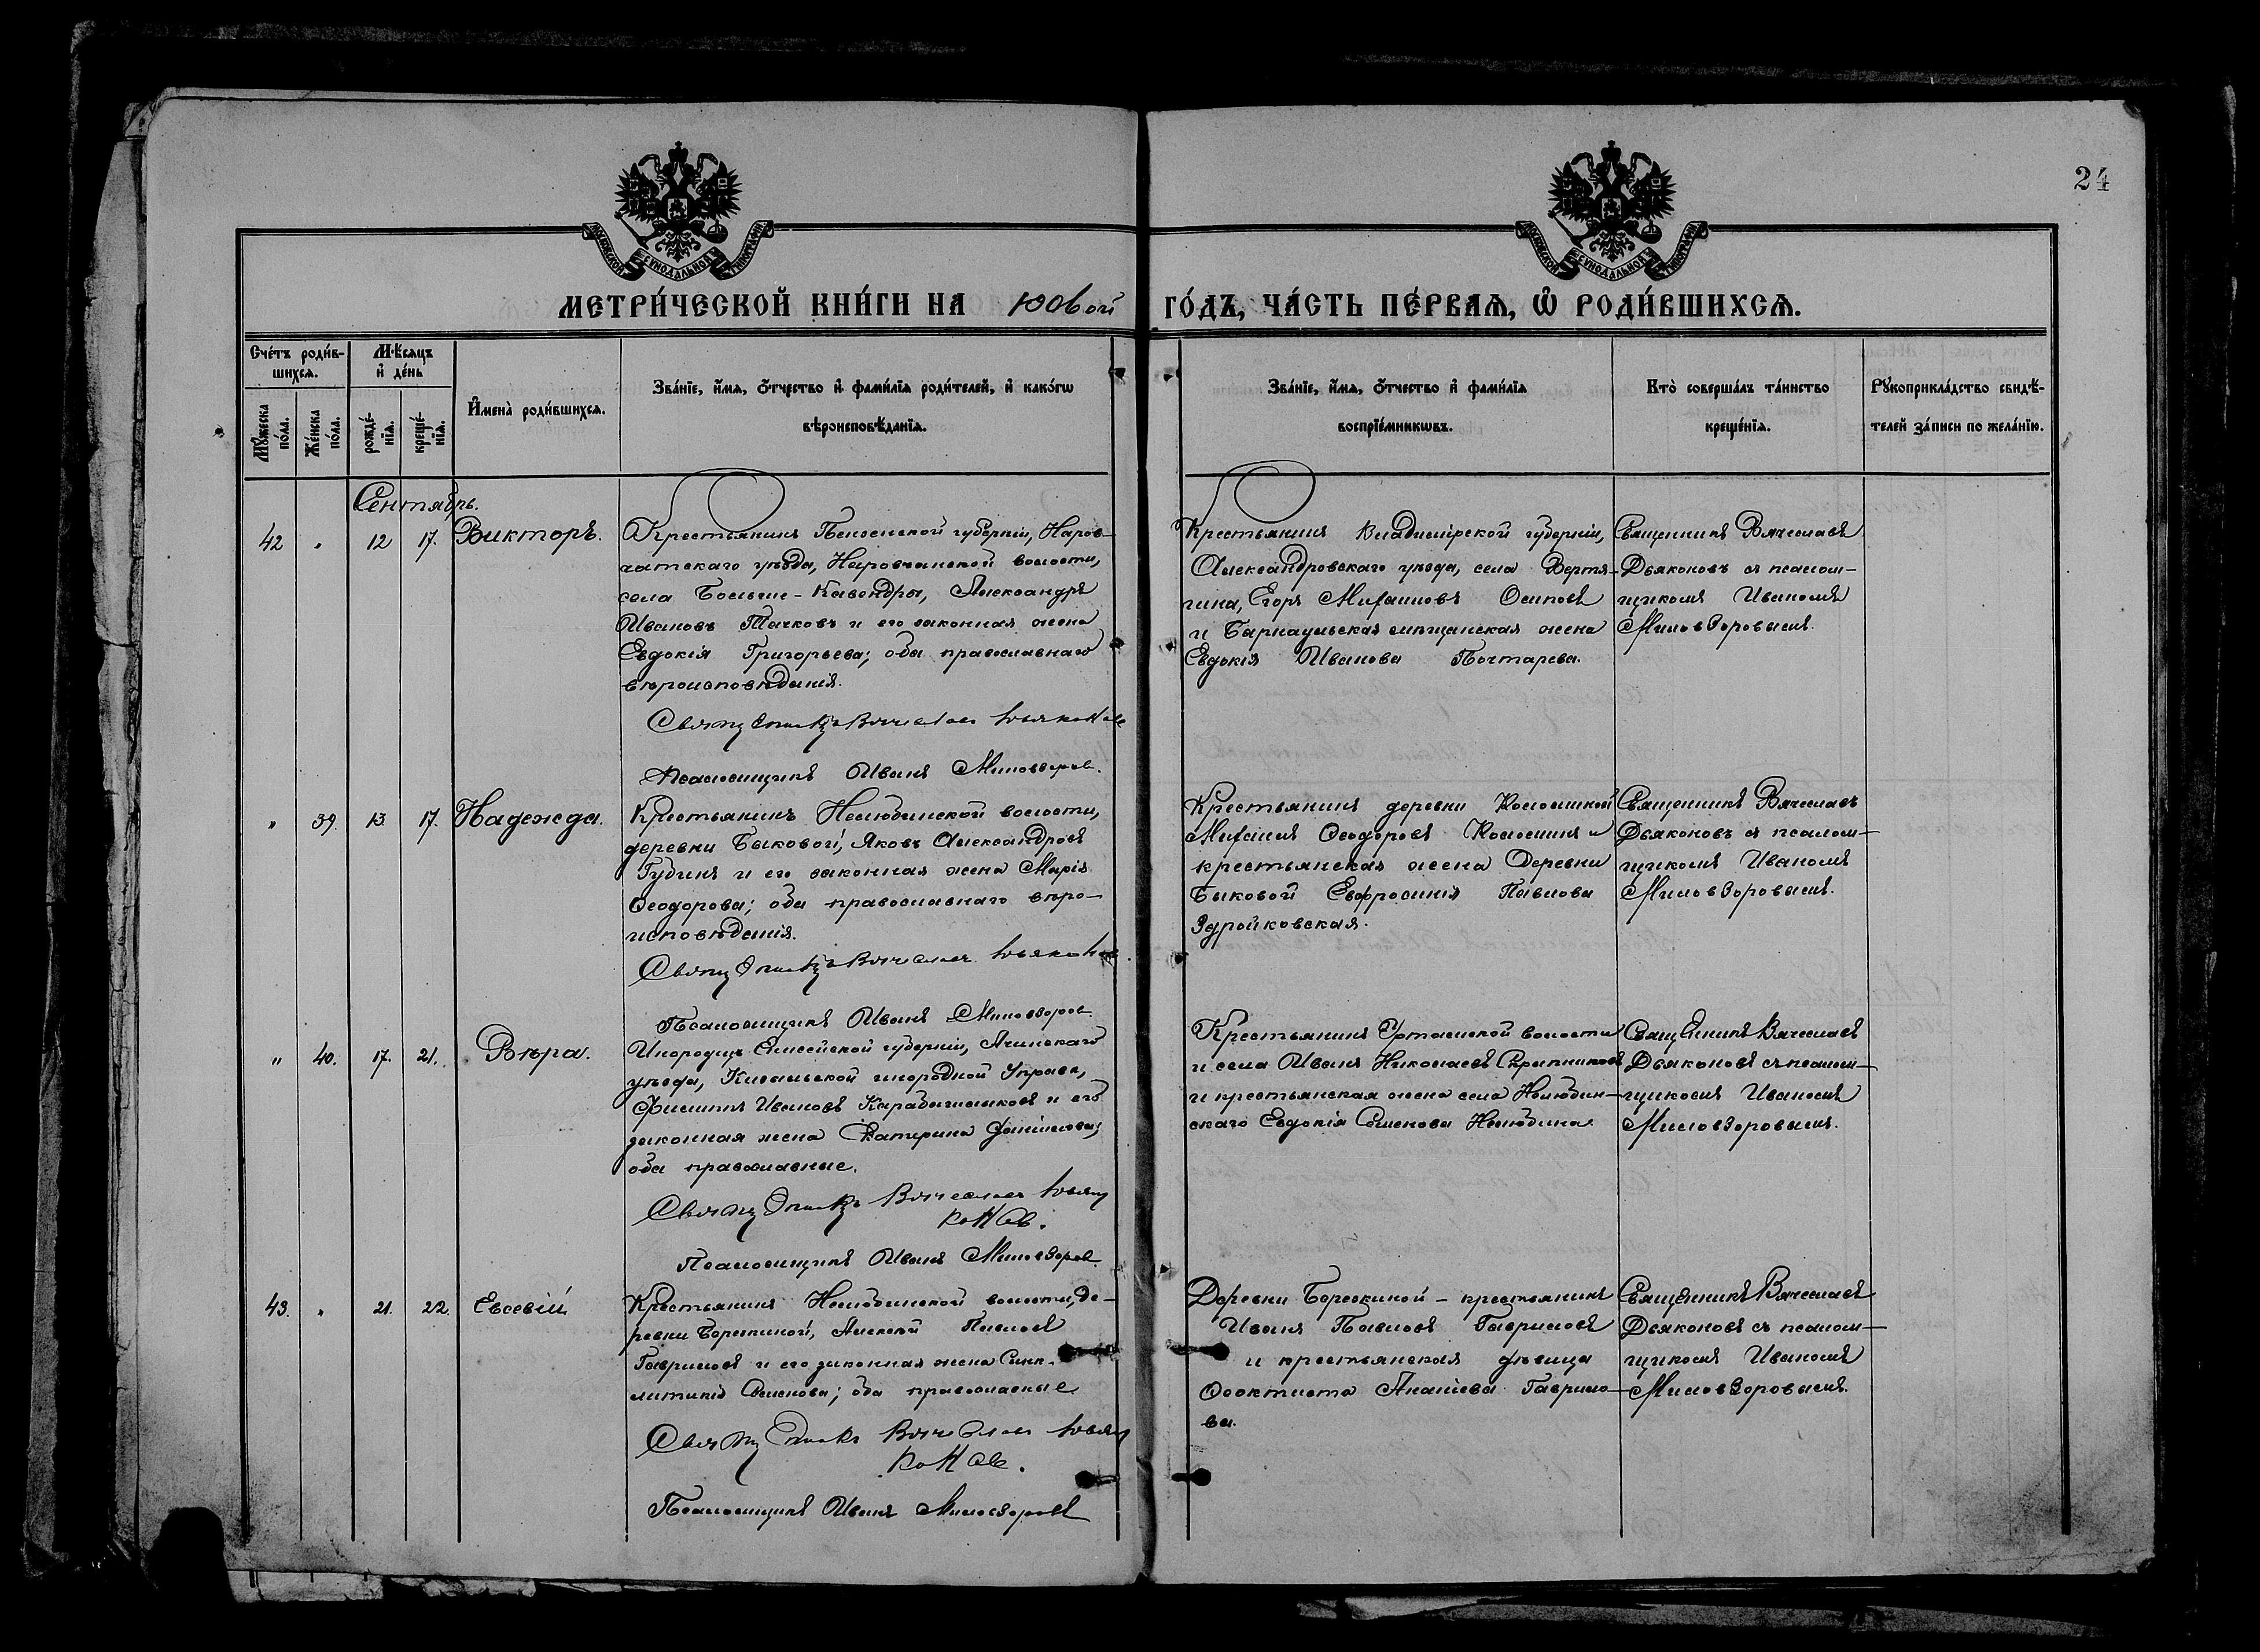 24
МОСКОВСКОЙ СѴНОДАЛЬНОЙ ТИПОГРАФІИ
МОСКОВСКОЙ СѴНОДАЛЬНОЙ ТИПОГРАФІИ
МЕТРИ́ЧЕСКОЙ КНИ́ГИ НА
ГО́ДЪ, ЧА́СТЬ ПЕ́РВАѦ, Ѡ҆ РОДИ́ВШИХСѦ.
Сче́тъ роди́в-
шихсѧ.
Мѣ́сѧцъ
и҆ де́нь
Мꙋ́жеска
по́ла.
Же́нска
по́ла.
рожде́-
нїѧ.
креще́-
нїѧ.
И҆мена̀ роди́вшихсѧ.
Зва́нїе, и҆́мѧ, ѻ҆́тчество и҆ фами́лїѧ роди́телей, и҆ како́гѡ
вѣроисповѣ́данїѧ.
Зва́нїе, и҆́мѧ, ѻ҆́тчество и҆ фами́лїѧ
воспрїе́мникѡвъ.
Кто̀ соверша́лъ та́инство
креще́нїѧ.
Рꙋкоприкла́дство свидѣ́-
телей за́писи по жела́нїю.
Сентябрь.
42 " 12 17. Викторъ.
Крестьянинъ Пензенской губерніи, Наров-
чатскаго уѣзда, Наровчатской волости,
села Больше-Кавендры, Александръ
Ивановъ Тачковъ и его законная жена
Евдокія Григорьева; оба православнаго
вѣроисповѣданія.
Священникъ Вячеславъ Дьяконовъ
Псаломщикъ Иванъ Миловзоровъ.
Крестьянинъ Владимірской губерніи,
Александровскаго уѣзда, села Вертя-
гина, Егоръ Михаиловъ Осиповъ
и Барнаульская мѣщанская жена
Евдокія Иванова Почтарева.
Священникъ Вячеславъ
Дьяконовъ съ псалом-
щикомъ Иваномъ
Миловзоровымъ.
" 39. 13. 17. Надежда.
Крестьянинъ Нелюбинской волости,
деревни Быковой, Яковъ Александровъ
Губинъ и его законная жена Марія
Ѳеодорова; оба православнаго вѣро-
исповѣданія.
Священникъ Вячеславъ Дьяконовъ
Псаломщикъ Иванъ Миловзоровъ.
Крестьянинъ деревни
Михаилъ Ѳеодоровъ и
крестьянская жена деревни
Быковой Евфросинія Павлова
Здройковская.
Священникъ Вячеславъ
Дьяконовъ съ псалом-
щикомъ Иваномъ
Миловзоровымъ.
" 40. 17. 21. Вѣра.
Инородецъ Енисейской губерніи, Ачинскаго
уѣзда, Кизыльской инородной Управы,
Филиппъ Ивановъ и его
законная жена Екатерина Даніилова;
оба православные.
Священникъ Вячеславъ Дьяконовъ.
Псаломщикъ Иванъ Миловзоровъ.
Крестьянинъ волости
и села Иванъ Николаевъ Скрипниковъ
и крестьянская жена села Нелюбин-
скаго Евдокія Семенова Нелюбина.
Священникъ Вячеславъ
Дьяконовъ съ псалом-
щикомъ Иваномъ
Миловзоровымъ.
43. " 21. 22. Евсевій
Крестьянинъ Нелюбинской волости, де-
ревни Берёзкиной, Алексѣй Павловъ
Гавриловъ и его законная жена Синк-
литикія Семенова; оба православные
Священникъ Вячеславъ Дьяконовъ.
Псаломщикъ Иванъ Миловзоровъ
Деревни Березкиной - крестьянинъ
Иванъ Павловъ Гавриловъ
и крестьянская дѣвица
Ѳеоктиста Ананіева Гаврило-
ва.
Священникъ Вячеславъ
Дьяконовъ съ псалом-
щикомъ Иваномъ
Миловзоровымъ.